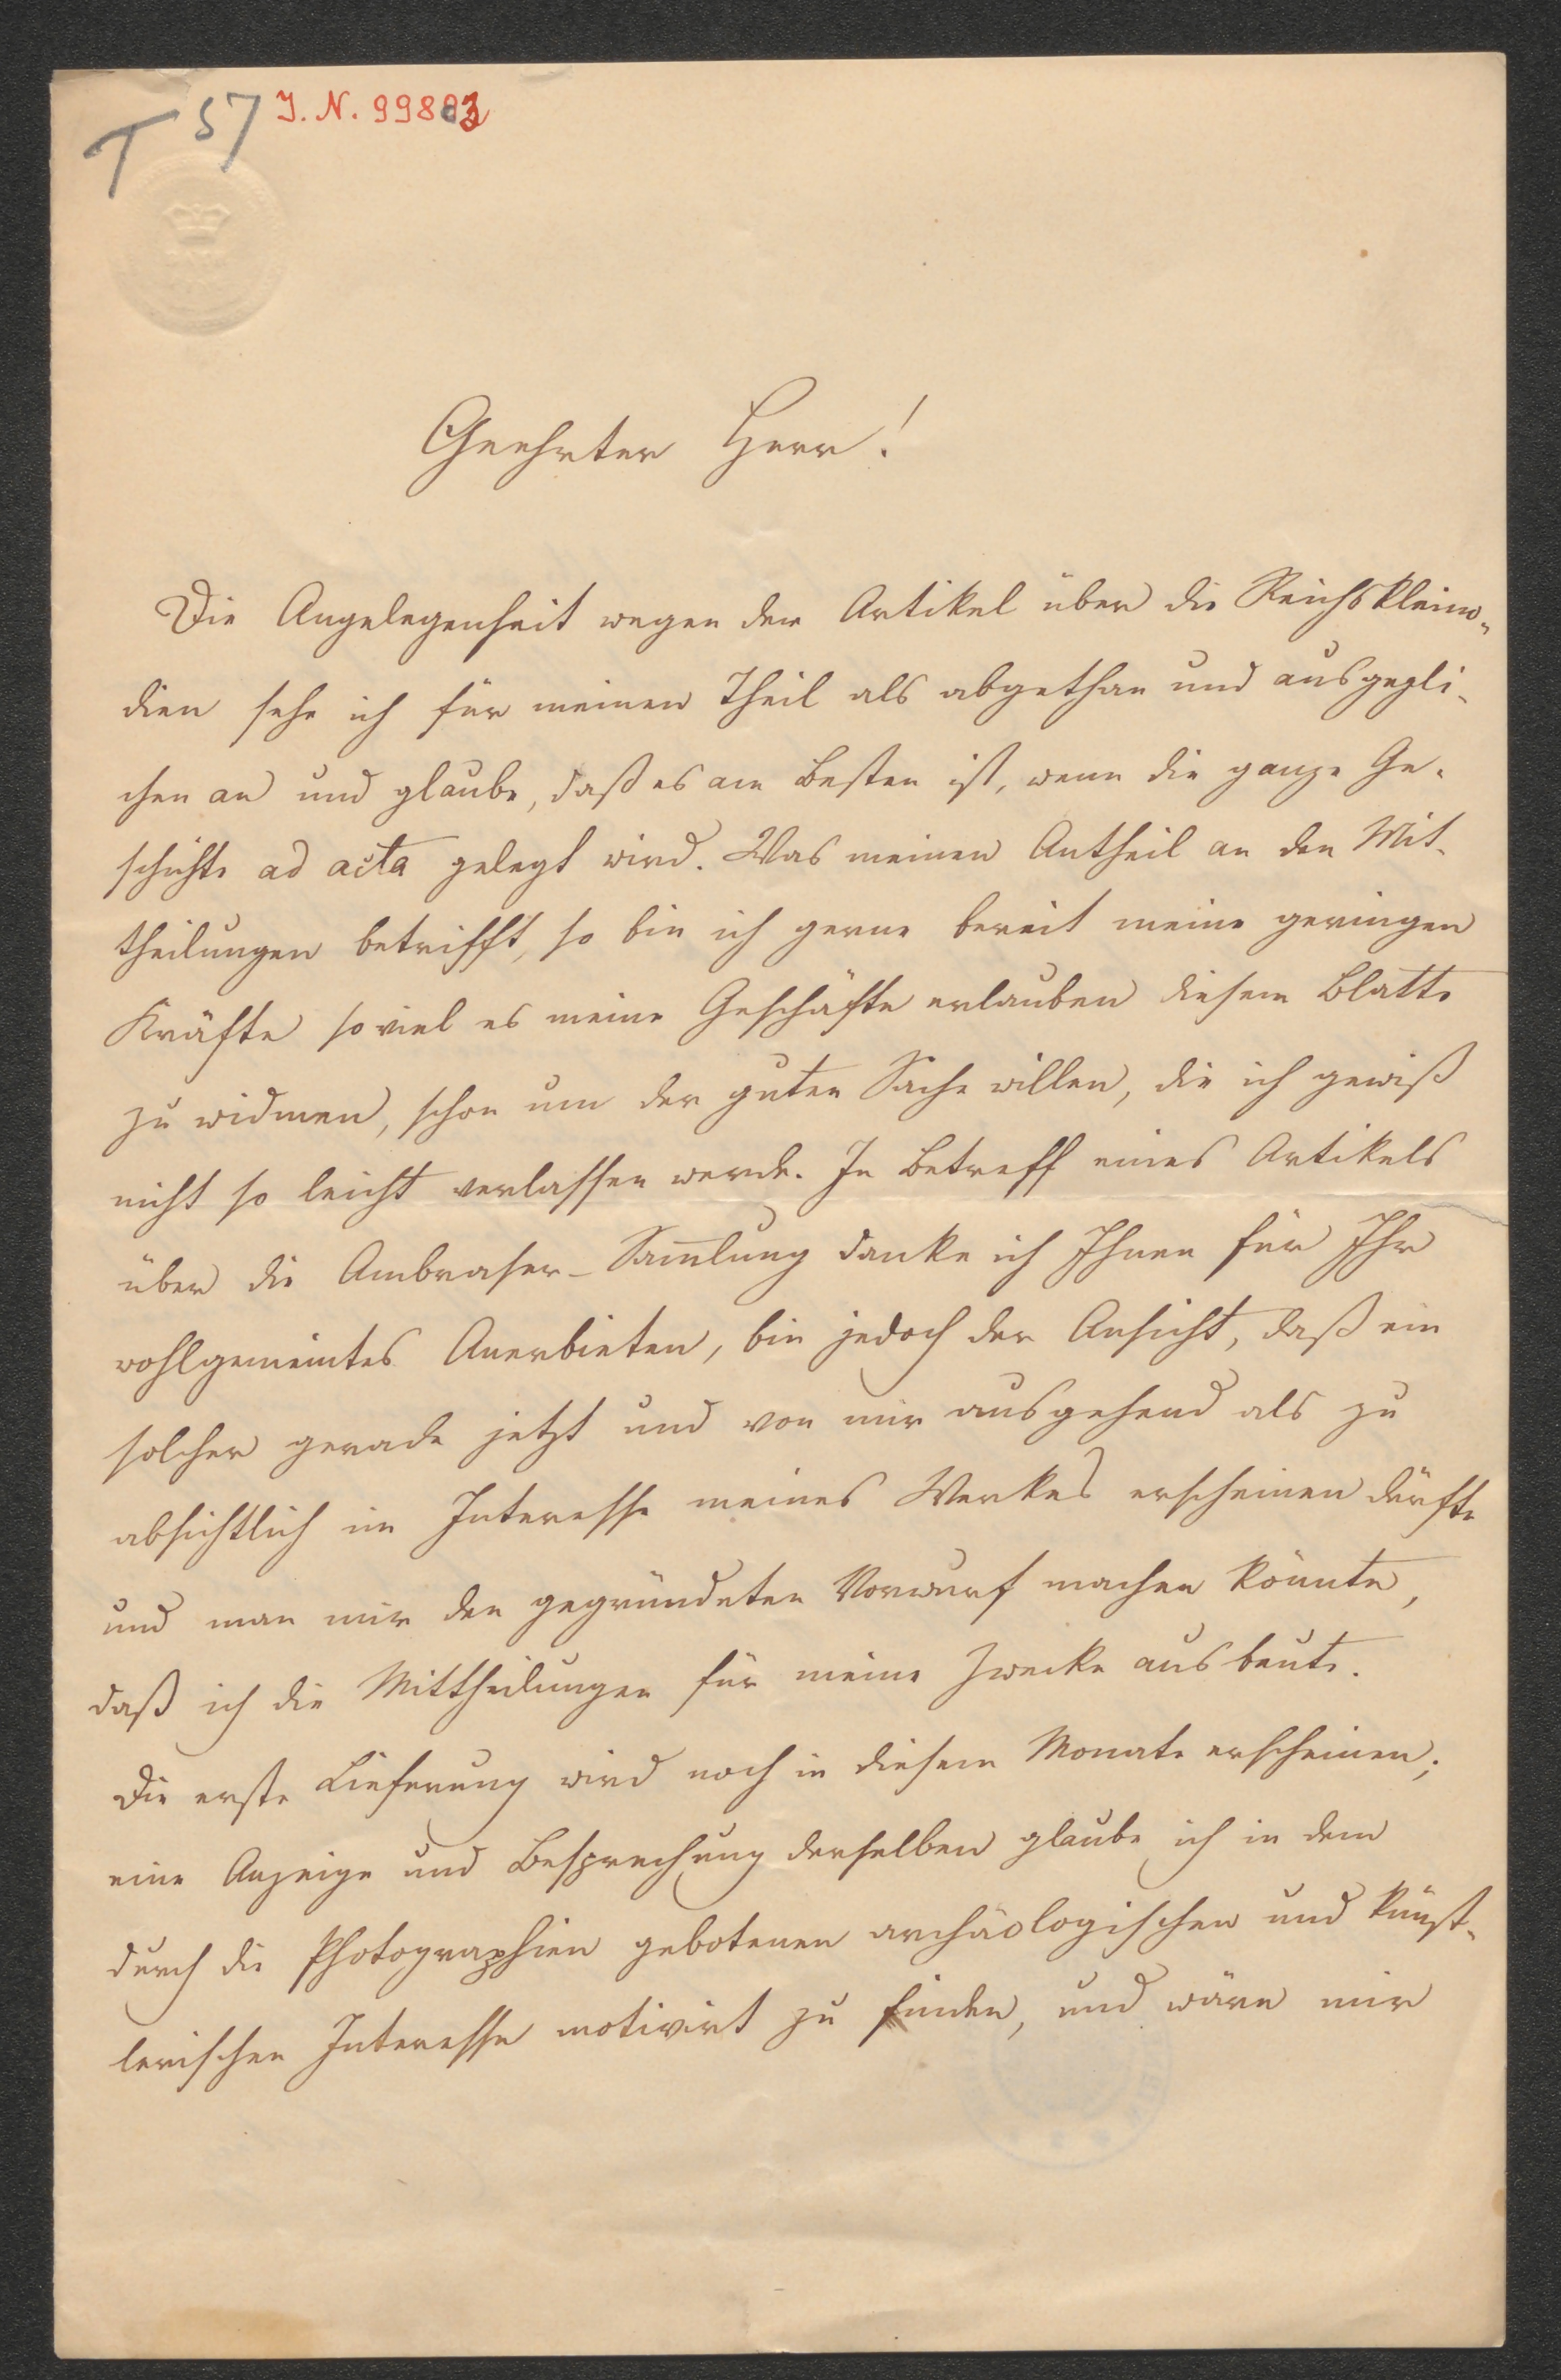 T 57 J. N. 99883
Geehrter Herr!
Die Angelegenheit wegen der Artikel über die Reichskleino-
dien sehe ich für meinen Theil als abgethan und ausgegli-
chen an und glaube, daß es am Besten ist, wenn die ganze Ge-
schichte ad acta gelegt wird. Was meinen Antheil an den Mit-
theilungen betrifft, so bin ich gerne bereit meine geringen
Kräfte so viel es meine Geschäfte erlauben diesem Blatte
zu widmen, schon um der guten Sache willen, die ich gewiß
nicht so leicht verlassen werde. In Betreff eines Artikels
über die Ambraser-Sam̅lung danke ich Ihnen für Ihr
wohlgemeintes Anerbieten, bin jedoch der Ansicht, daß ein
solcher gerade jetzt und von mir ausgehend als zu
absichtlich im Interesse meines Werkes erscheinen dürfte
und man mir den gegründeten Vorwurf machen könnte,
daß ich die Mittheilungen für meine Zwecke ausbeute.
Die erste Lieferung wird noch in diesem Monate erscheinen;
eine Anzeige und Besprechung derselben glaube ich in dem
durch die Photographien gebotenen archäologischen und künst-
lerischen Interesse motivirt zu finden, und wäre mir